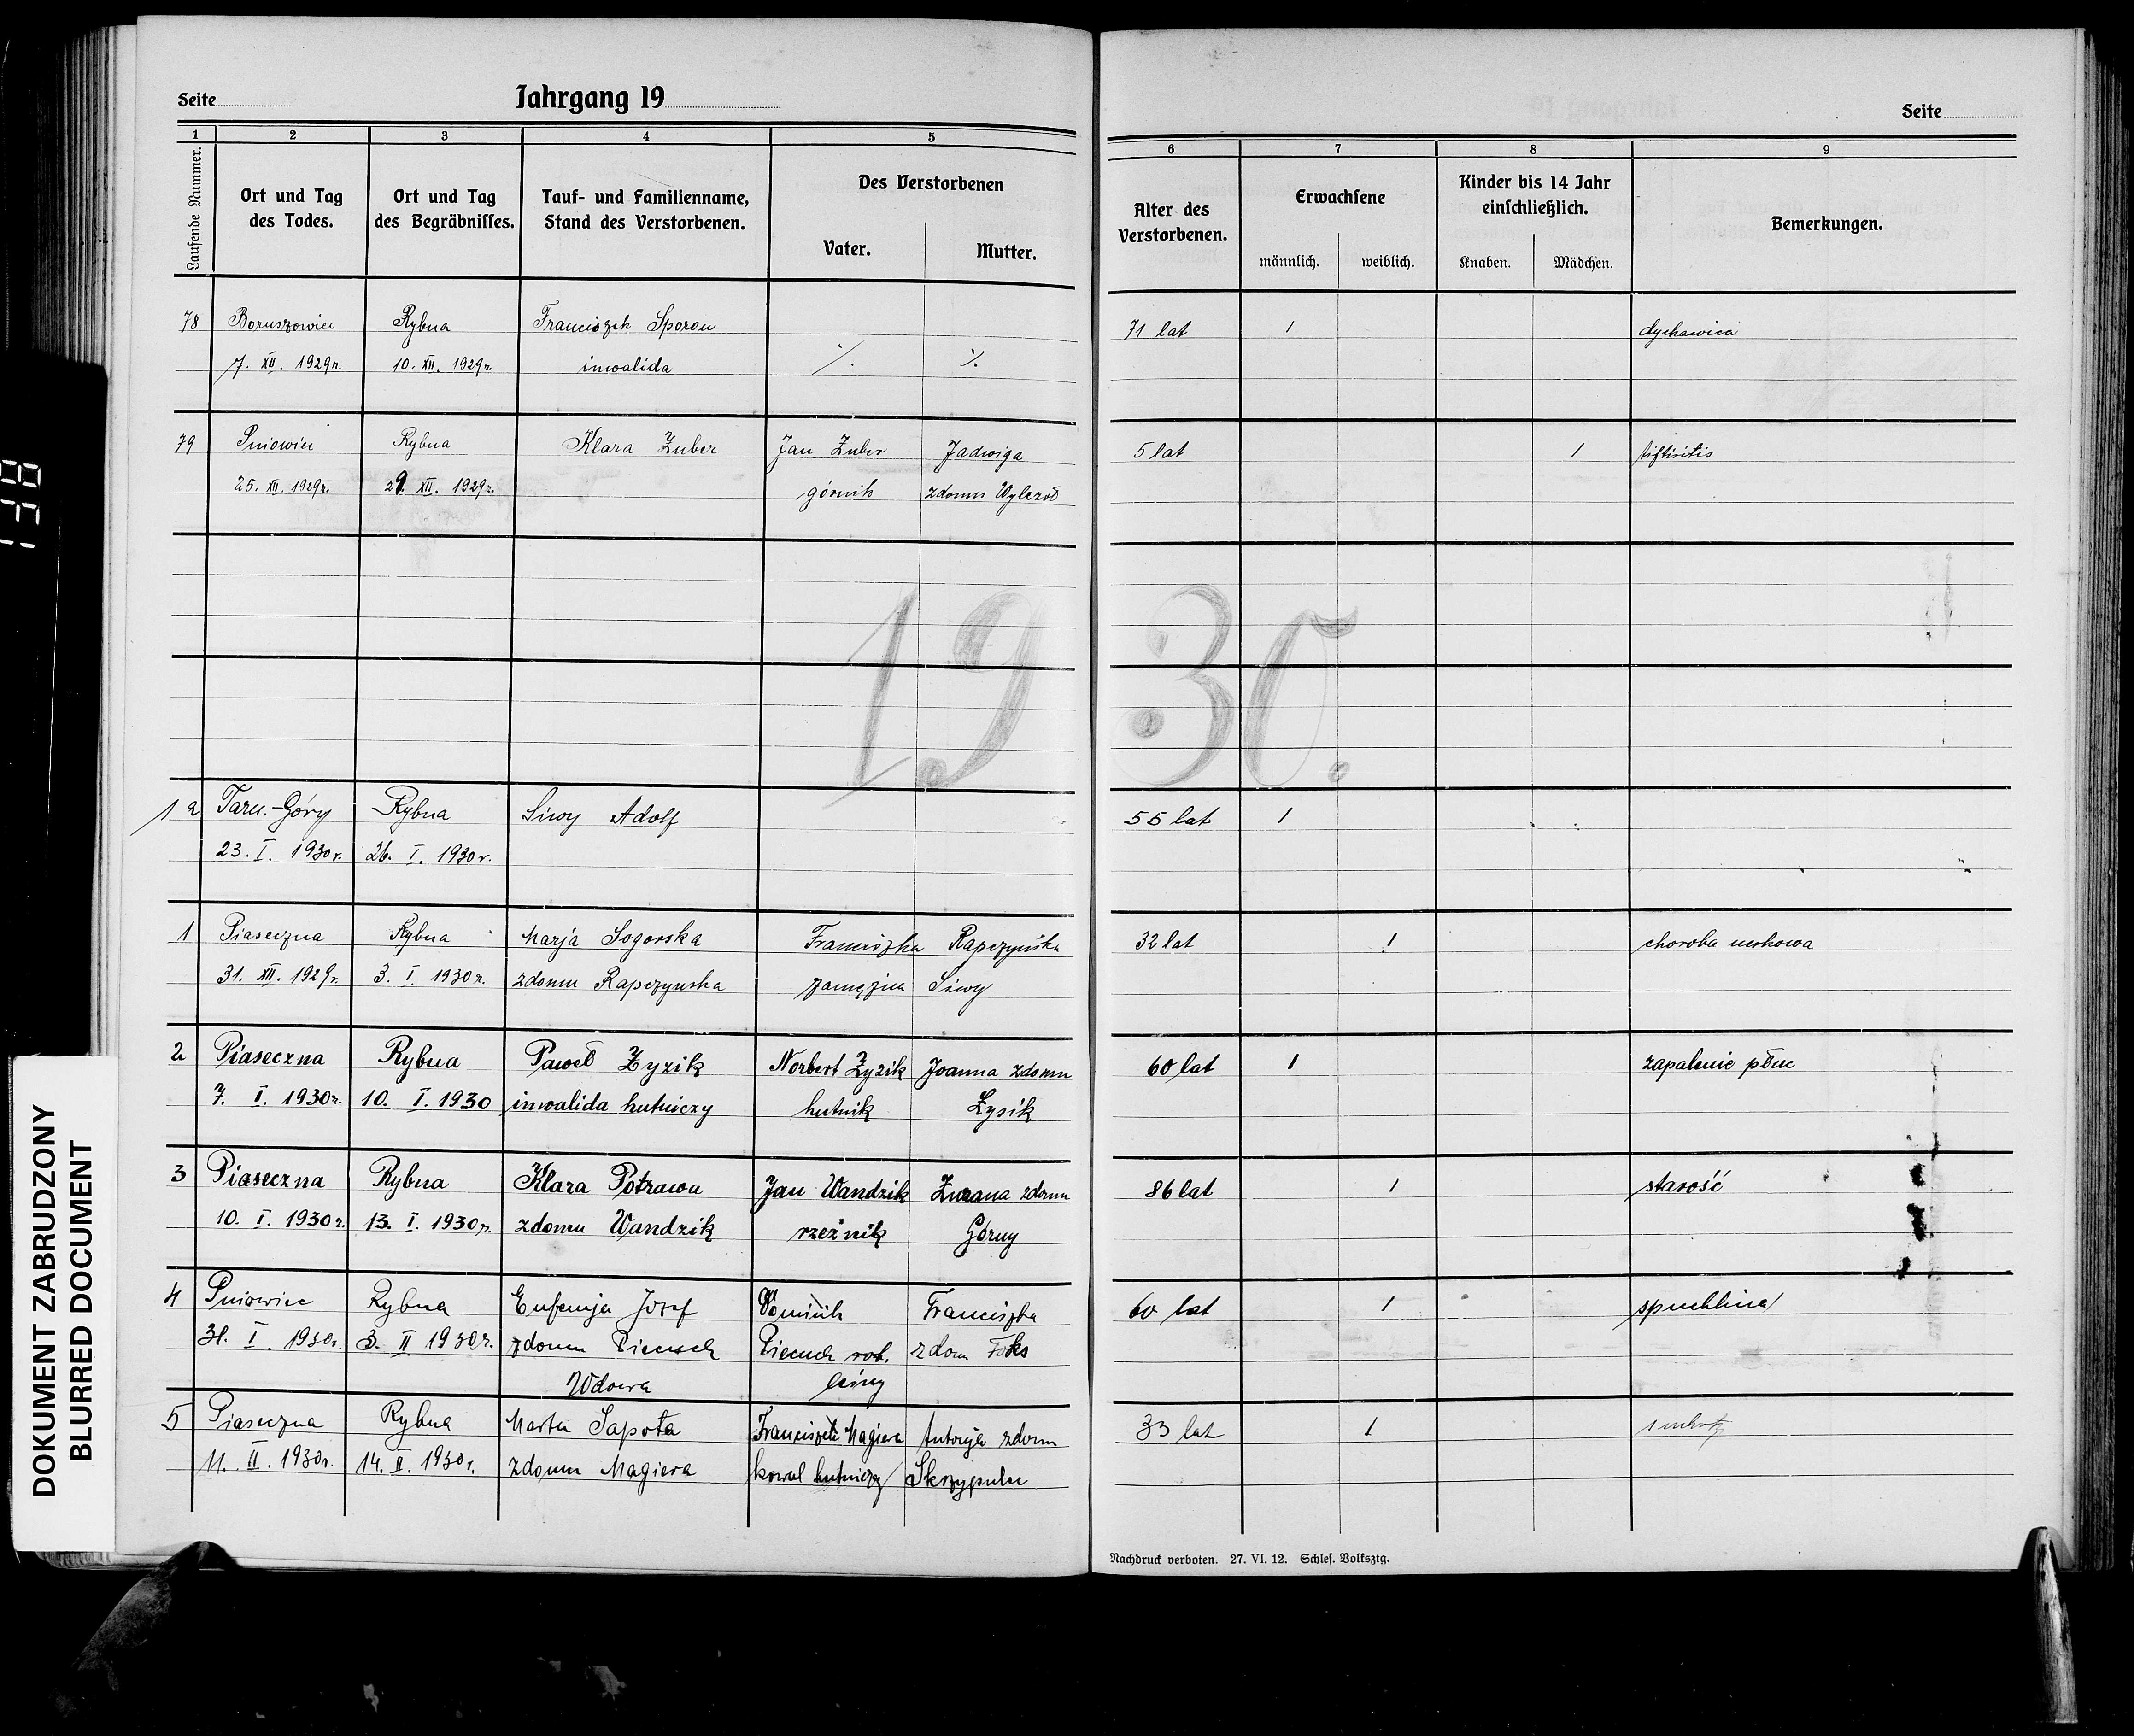 Seite
Jahrgang 19
Seite
1 2 3 4 5 6 7 8 9
Laufende Nummer.
Ort und Tag des Todes.
Ort und Tag des Begräbnisses.
Tauf- und Familienname, Stand des Verstorbenen.
Des Verstorbenen
Vater. Mutter.
Alter des Verstorbenen.
Erwachsene
männlich. weiblich.
Kinder bis 14 Jahr einschließlich.
Knaben. Mädchen.
Bemerkungen.
78 Boruszowiec Rybna Franciszek Sporon 71 lat 1 dychawica
7. XII. 1929r. 10. XII. 1929r. inwalida ./. ./.
79 Pniowiec Rybna Klara Zuber Jan Zuber Jadwiga 5 lat 1 tiftiritis
25. XII. 1929r. 29. XII. 1929r. górnik zdomu Wylezoł
19 30.
1 a Tarn.-Góry Rybna Siwy Adolf 55 lat 1
23. I. 1930r. 26. I. 1930r.
1 Piaseczna Rybna Marja Sogorska Franciszka Rapczyńska 32 lat 1 choroba
31. XII. 1929r. 3. I. 1930r. zdomu Rapczynska zamężna Siwy
2 Piaseczna Rybna Paweł Zyzik Norbert Zyzik Joanna zdomu 60 lat 1 zapalenie płuc
7. I. 1930r. 10. I. 1930 inwalida hutniczy hutnik Zysik
3 Piaseczna Rybna Klara Potrawa Jan Wandzik zdomu 86 lat 1 starość
10. I. 1930r. 13. I. 1930r. zdomu Wandzik rzeźnik Górny
4 Pniowiec Rybna Eufemja Josef Dominik Franciszka 60 lat 1 spuchlina
31. I. 1930r. 3. II 1930r. zdomu Piecuch Piecuch rob. zdom Foks
Wdowa leśny
5 Piaseczna Rybna Marta Sapota Franciszek Magiera Antonja zdom 33 lat 1 suchoty
11. II. 1930r. 14. II. 1930r. zdomu Magiera kowal hutniczy Skrzypulec
Nachdruck verboten. 27. VI. 12. Schles. Volksztg.
DOKUMENT ZABRUDZONY
BLURRED DOCUMENT
138